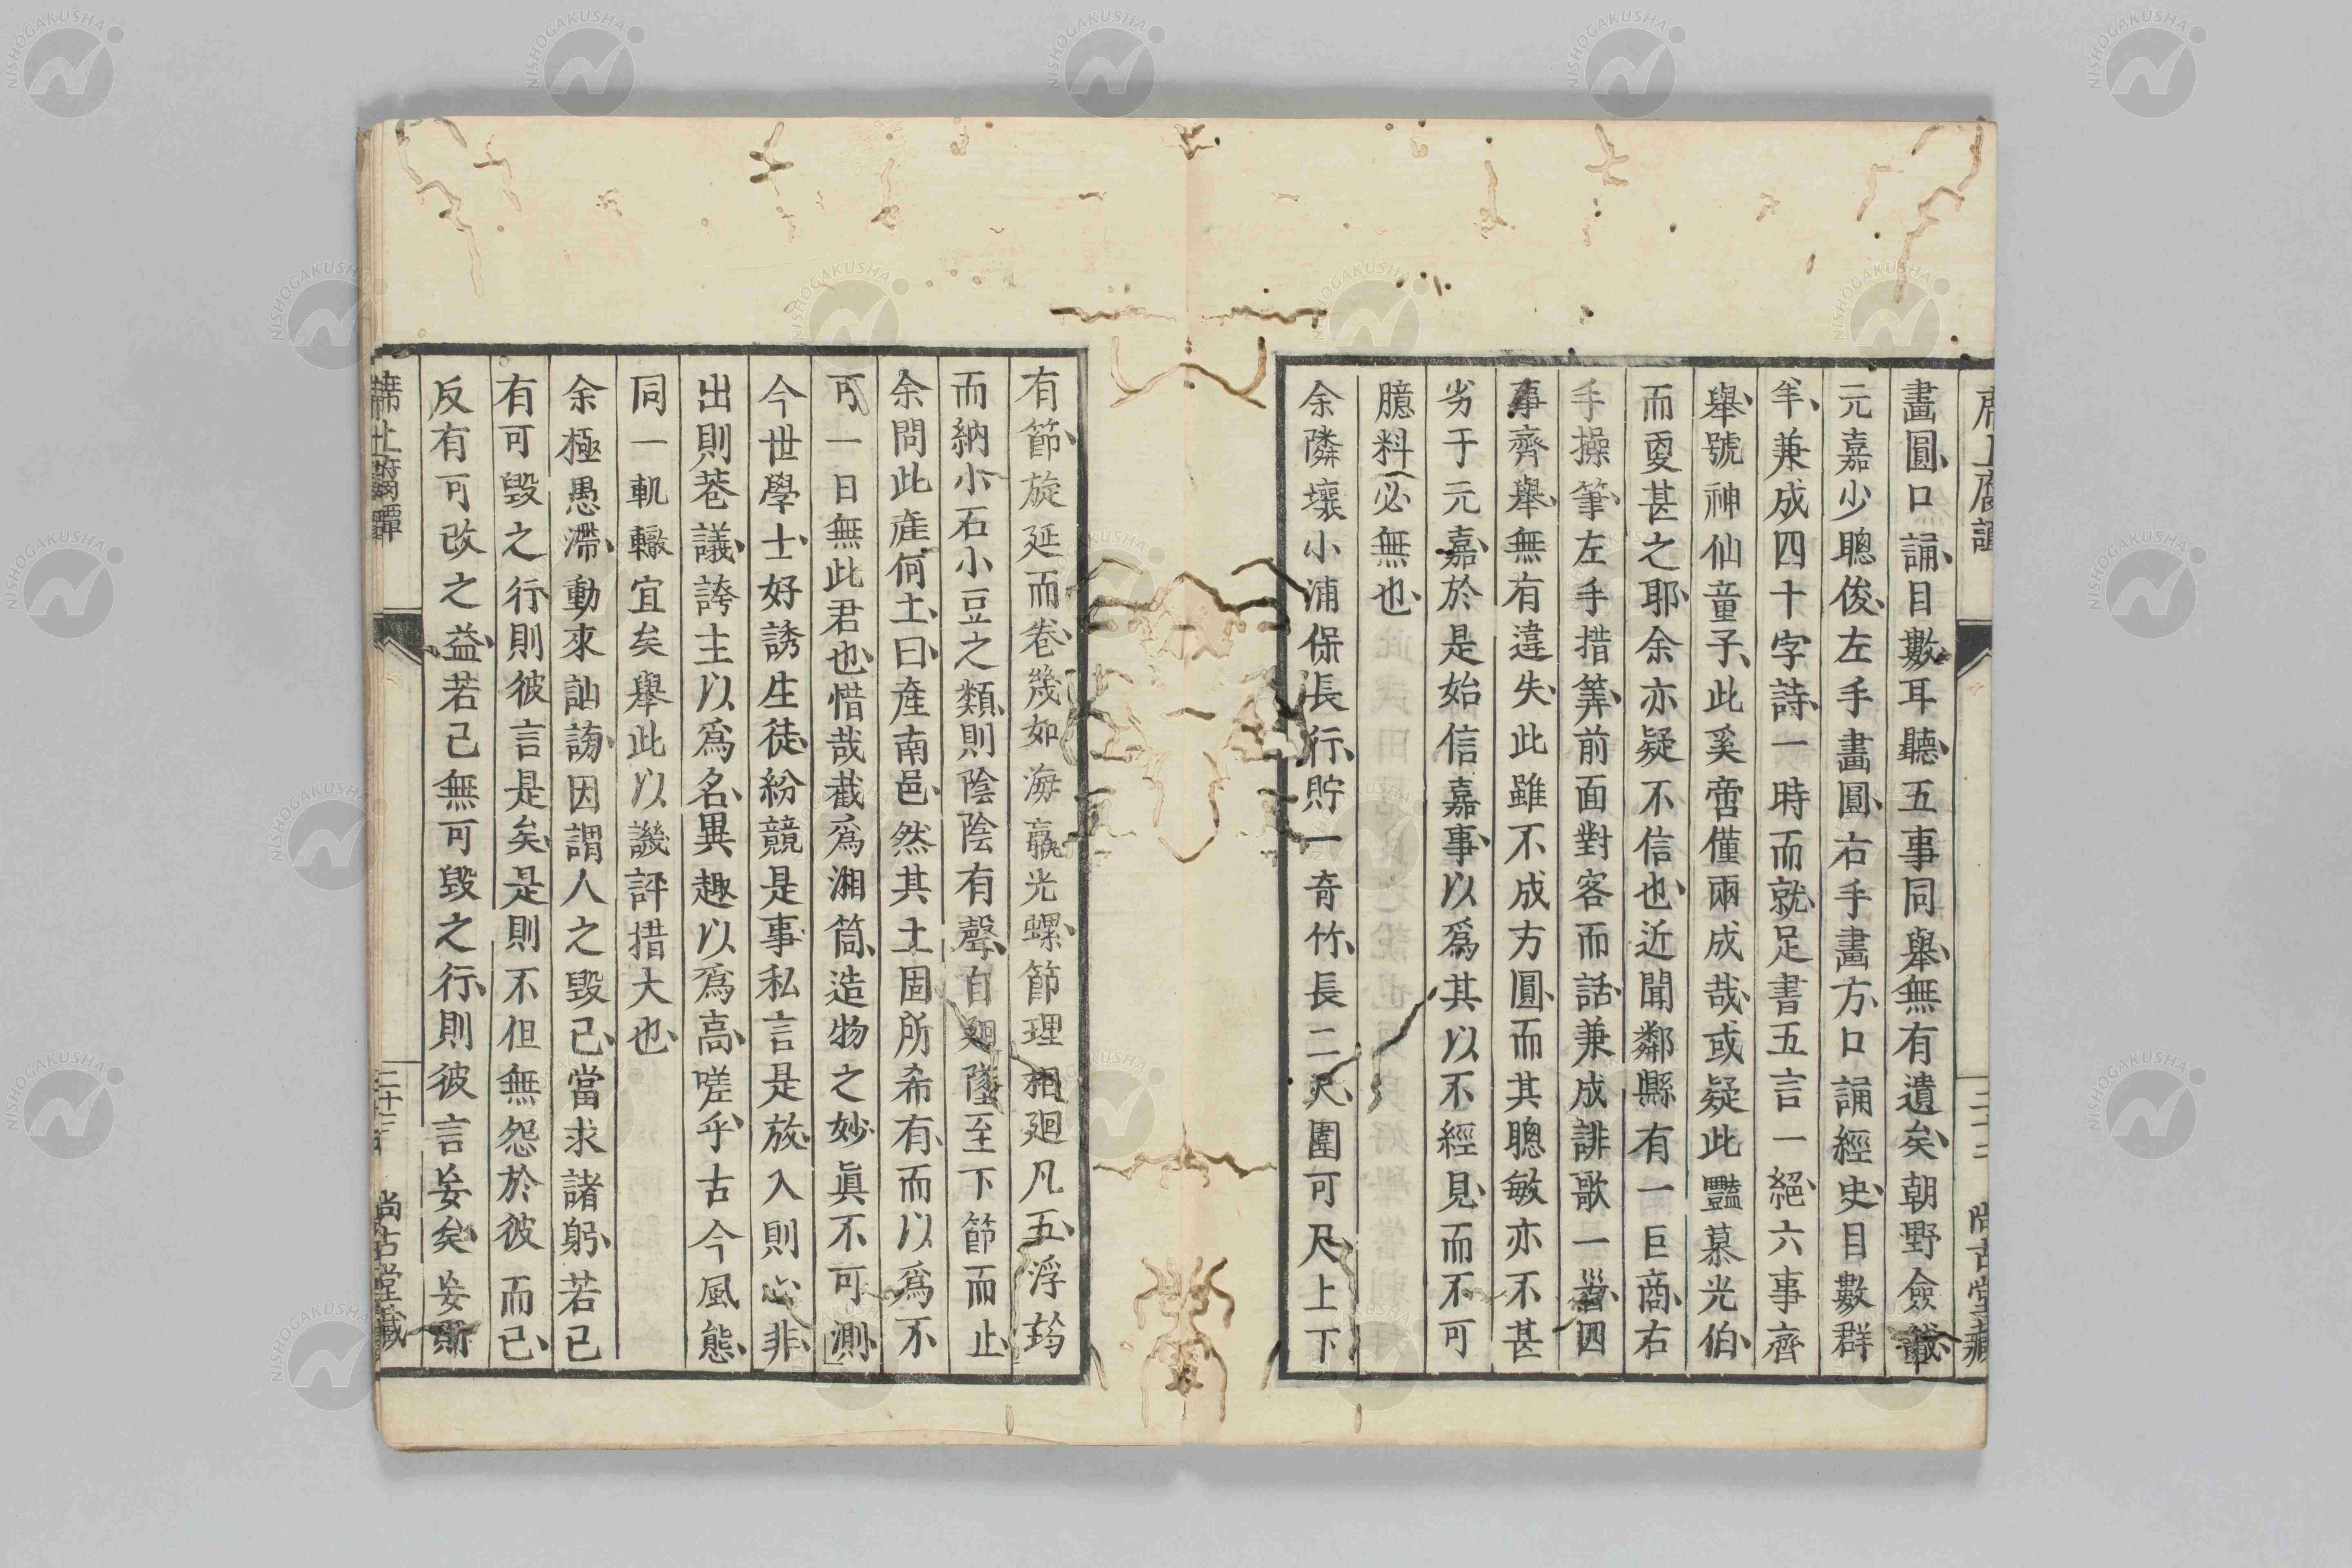 畫圓、口誦、目數、耳聽、五事同舉、無有遺矣、朝野僉載、
元嘉少聰俊、左手畫圓、右手畫方、口誦經史、目數群
羊、兼成四十字詩、一時而就、足書五言一絕、六事齊
舉、號神仙童子、此奚啻僅兩成哉、或疑此豔慕光伯、
而更甚之耶、余亦疑不信也、近聞鄰縣有一巨商、右
手操筆、左手措筭、前面對客而話、兼成誹歌一首、四
事齊舉、無有違失、此雖不成方圓、而其聰敏亦不甚
劣于元嘉、於是始信嘉事、以爲其以不經見、而不可
臆料必無也、
余隣壤小浦保長行、貯一奇竹、長二尺、圍可尺、上下
有節、旋延而卷、幾如海蠃光螺、節理相廻凡五、浮筠
而納小石小豆之類、則陰陰有聲、自廻墜至下節而止、
余問此產何土、曰產南邑、然其土固所希有、而以爲不
可一日無此君也、惜哉截爲湘筒、造物之妙、眞不可測、
今世學士、好誘生徒、紛競是事、私言是放、入則心非、
出則巷議、誇主以爲名、異趣以爲高、嗟乎古今風態、
同一軌轍宜矣、舉此以譏評措大也、
余極愚滯、動來訕謗、因謂人之毀己、當求諸躬、若己
有可毀之行、則彼言是矣、是則不但無怨於彼而已、
反有可改之益、若己無可毀之行、則彼言妄矣、妄斯
席上腐譚
二十三
尚古堂藏